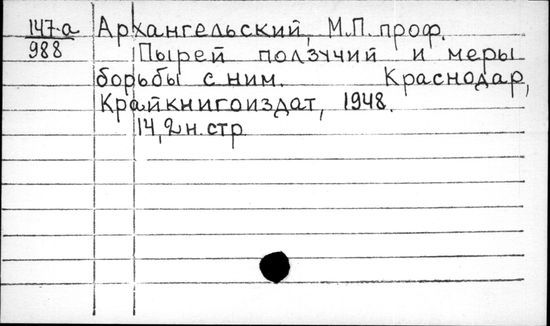 147-а Архангельский, М.П. проф.
988 Пырей ползучий и меры
борьбы с ним. Краснодар,
Крайкнигоиздат, 1948.
14,2 н. стр